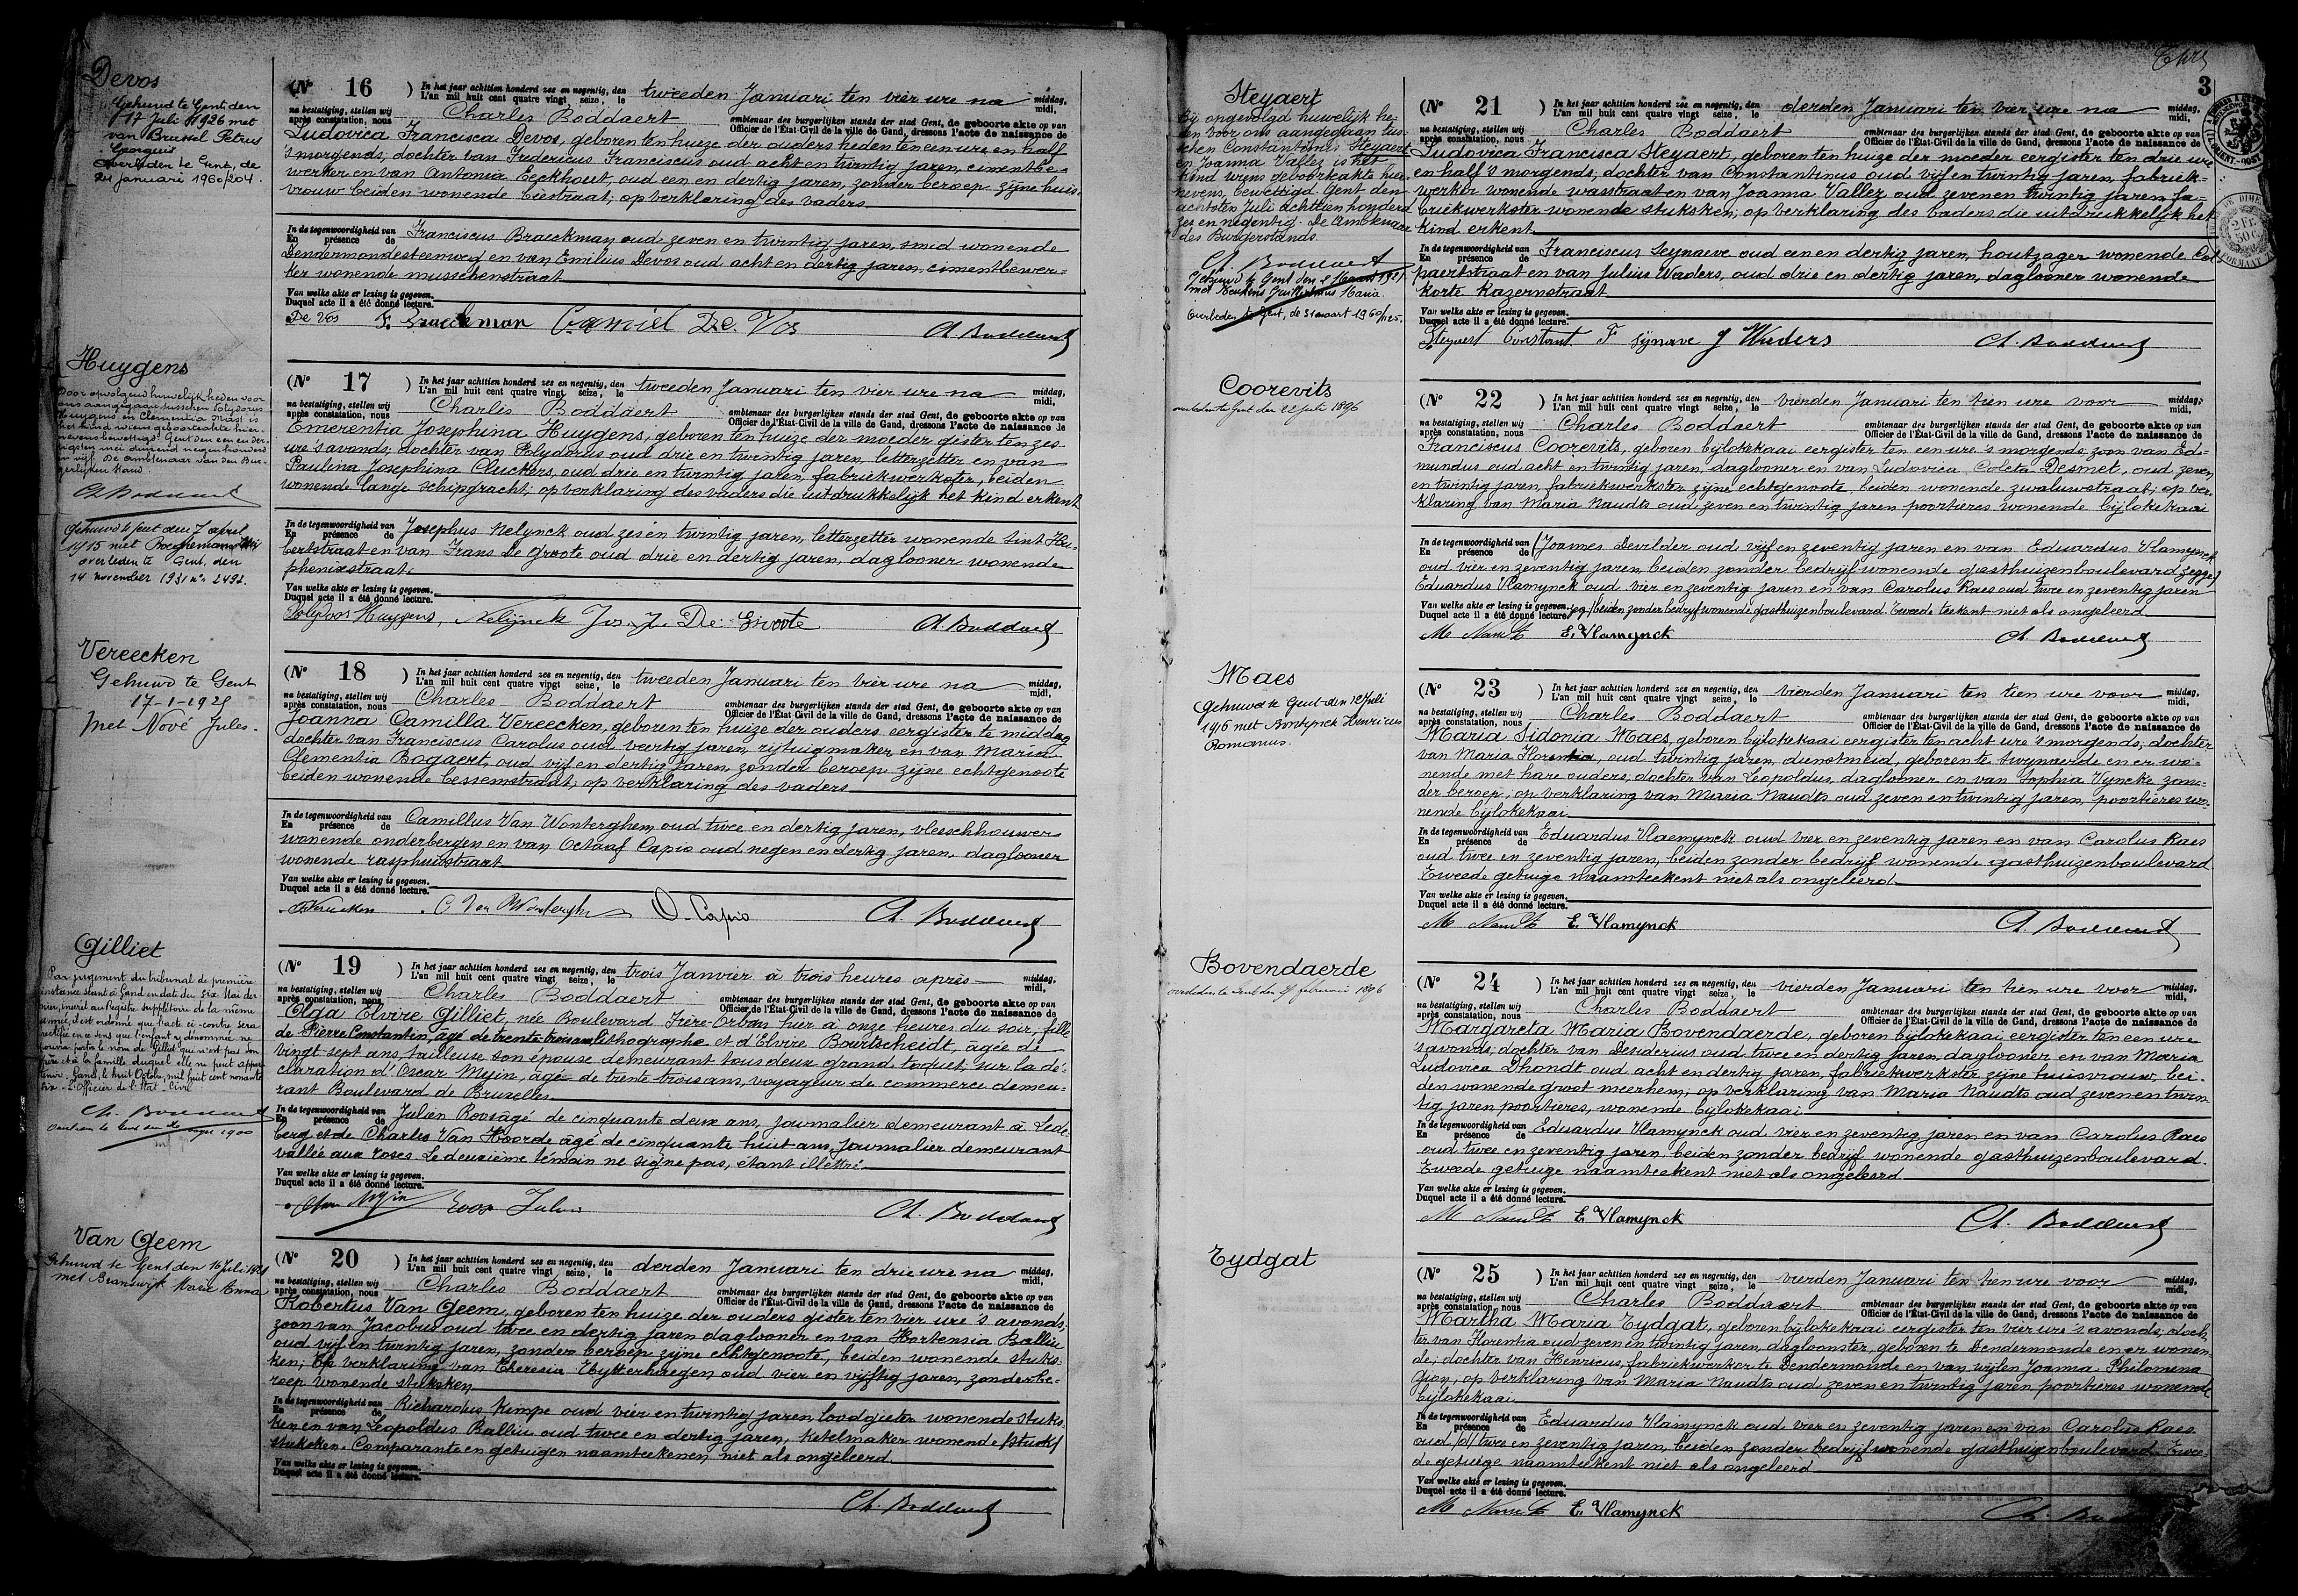 Devos
Gehuwd te Gent den
17 Juli 1926 met
van Brussel Petrus
Georgius
overleden te Gent, de
24 januari 1960/204.
(No 16) In het jaar achttien honderd zes en negentig, den tweeden Januari ten vier ure na middag,
L'an mil huit cent quatre vingt seize, le midi,
na bestatiging, stellen wij Charles Boddaert ambtenaar des burgerlijken stands der stad Gent, de geboorte akte op van
après constatation, nous Officier de l'État-Civil de la ville de Gand, dressons l'acte de naissance de
Ludovica Francisca Devos, geboren ten huize der ouders heden ten een ure en half
's morgends; dochter van Fredericus Franciscus oud acht en twintig jaren, cimentbe-
werker en van Antonia Eeckhout, oud een en dertig jaren, zonder beroep zijne huis-
vrouw beiden wonende biestraat; op verklaring des vaders
In de tegenwoordigheid van Franciscus Braeckman oud zeven en twintig jaren, smid wonende
En présence de
Dendermondesteenweg en van Emilius Devos oud acht en dertig jaren, cimentbewer-
ker wonende musschenstraat
Van welke akte er lezing is gegeven.
Duquel acte il a été donné lecture.
De Vos F. Braeckman Camiel De Vos Ch. Boddaert
Huygens
Door opvolgend huwelijk heden voor
ons aangegaan tusschen Polydorus
Huygens en Clementia
het kind wiens geboorteakte hier-
nevens bevestigd. Gent den een en der-
tigsten mei duizend negenhonderd
en vijf. De ambtenaar van den Bur-
gerlijken Stand.
Ch. Boddaert
Gehuwd te Gent den 7 april
1915 met
overleden te Gent, den
14 november 1931 no 2492.
(No 17) In het jaar achttien honderd zes en negentig, den tweeden Januari ten vier ure na middag,
L'an mil huit cent quatre vingt seize, le midi,
na bestatiging, stellen wij Charles Boddaert ambtenaar des burgerlijken stands der stad Gent, de geboorte akte op van
après constatation, nous Officier de l'État-Civil de la ville de Gand, dressons l'acte de naissance de
Emerentia Josephina Huygens, geboren ten huize der moeder gister ten zes
ure 's avonds; dochter van Polydorus oud drie en twintig jaren, letterzetter en van
Paulina Josephina Cluckers, oud drie en twintig jaren, fabriekwerkster, beiden
wonende lange schipgracht; op verklaring des vaders die uitdrukkelijk het kind erkent
In de tegenwoordigheid van Josephus Nelynck oud zes en twintig jaren, letterzetter wonende Sint Hu-
En présence de
bertstraat en van Frans De Groote oud drie en dertig jaren, daglooner wonende
phenixstraat.
Van welke akte er lezing is gegeven.
Duquel acte il a été donné lecture.
Polydoor Huygens, Nelijnck Jos. J. De Groote Ch. Boddaert
Vereecken
Gehuwd te Gent
17-1-1925
met Nové Jules.
(No 18) In het jaar achttien honderd zes en negentig, den tweeden Januari ten vier ure na middag,
L'an mil huit cent quatre vingt seize, le midi,
na bestatiging, stellen wij Charles Boddaert ambtenaar des burgerlijken stands der stad Gent, de geboorte akte op van
après constatation, nous Officier de l'État-Civil de la ville de Gand, dressons l'acte de naissance de
Joanna Camilla Vereecken, geboren ten huize der ouders eergister te middag
dochter van Franciscus Carolus oud veertig jaren, rijtuigmaker en van Maria
Clementia Bogaert, oud vijf en dertig jaren, zonder beroep zijne echtgenoote
beiden wonende bessemstraat; op verklaring des vaders
In de tegenwoordigheid van Camillus Van Wonterghem, oud twee en dertig jaren, vleeschhouwer
En présence de
wonende onderbergen en van Octaaf Capio oud negen en dertig jaren, daglooner
wonende rasphuisstraat
Van welke akte er lezing is gegeven.
Duquel acte il a été donné lecture.
Vereecken C Van Wonterghem O. Capio Ch. Boddaert
Gilliet
Par jugement du tribunal de première
instance séant à Gand en date du six Mai der-
nier, inscrit au Registre supplétoire de la même
année, il est ordonné que l'acte ci-contre sera
rectifié en ce sens que l'enfant y dénommée ne
pourra porter le nom de Gilliet qui n'est pas son
père et à la famille duquel elle ne peut appar-
tenir. Gand, le huit Octobre mil huit cent nonante
six. L'Officier de l'État-Civil
Ch. Boddaert
1900
(No 19) In het jaar achttien honderd zes en negentig, den trois Janvier à trois heures après middag,
L'an mil huit cent quatre vingt seize, le midi,
na bestatiging, stellen wij Charles Boddaert ambtenaar des burgerlijken stands der stad Gent, de geboorte akte op van
après constatation, nous Officier de l'État-Civil de la ville de Gand, dressons l'acte de naissance de
Olga Elvire Gilliet, née Boulevard Frère-Orban hier à onze heures du soir, fille
de Pierre Constantin, âgé de trente-trois ans, lithographe et d'Elvire Bourtscheidt, âgée de
vingt sept ans, tailleuse son épouse demeurant tous deux grand toquet; sur la dé-
claration d'Oscar Meyin, âgé de trente trois ans, voyageur de commerce demeu-
rant Boulevard de Bruxelles
In de tegenwoordigheid van Julien Roos âgé de cinquante deux ans, journalier demeurant à Lede-
En présence de
berg et de Charles Van Hoorde âgé de cinquante huit ans, journalier demeurant
vallée aux roses. Le deuxième témoin ne signe pas, étant illettré.
Van welke akte er lezing is gegeven.
Duquel acte il a été donné lecture.
Roos Julien Ch. Boddaert
Van Geem
Gehuwd te Gent den 16 Juli 1921
met Maria Anna
(No 20) In het jaar achttien honderd zes en negentig, den derden Januari ten drie ure na middag,
L'an mil huit cent quatre vingt seize, le midi,
na bestatiging, stellen wij Charles Boddaert ambtenaar des burgerlijken stands der stad Gent, de geboorte akte op van
après constatation, nous Officier de l'État-Civil de la ville de Gand, dressons l'acte de naissance de
Robertus Van Geem, geboren ten huize der ouders gister ten vier ure 's avonds,
zoon van Jacobus oud twee en dertig jaren daglooner en van Hortensia Balliu
oud vijf en twintig jaren, zonder beroep zijne echtgenoote, beiden wonende stuks-
ken; op verklaring van Theresia Uytterhaegen oud vier en vijftig jaren, zonder be-
roep wonende stuksken
In de tegenwoordigheid van Richardus Kimpe oud vier en twintig jaren, loodgieter wonende stuks-
En présence de
ken en van Leopoldus Balliu oud twee en dertig jaren, ketelmaker wonende /stuck/
stuksken. Comparante en getuigen naamteekenen niet als ongeleerd.
Van welke akte er lezing is gegeven.
Duquel acte il a été donné lecture.
Ch. Boddaert
3
Steyaert
Bij opgevolgd huwelijk he-
den voor ons aangegaan tus-
schen Constantinus Steyaert
en Joanna Vallez is het
kind wiens geboorteakte hier-
nevens, bewettigd. Gent den
achtsten Juli achttien honderd
zes en negentig. De Ambtenaar
des Burgerstands.
Ch Boddaert
Overleden te Gent, de 31 maart 1960/1125.
(No 21) In het jaar achttien honderd zes en negentig, den derden Januari ten vier ure na middag,
L'an mil huit cent quatre vingt seize, le midi,
na bestatiging, stellen wij Charles Boddaert ambtenaar des burgerlijken stands der stad Gent, de geboorte akte op van
après constatation, nous Officier de l'État-Civil de la ville de Gand, dressons l'acte de naissance de
Ludovica Francisca Steyaert, geboren ten huize der moeder eergister ten drie ure
en half 's morgends; dochter van Constantinus oud vijf en twintig jaren, fabriek-
werker wonende wasstraat en van Joanna Vallez oud zeven en twintig jaren fa-
briekwerkster wonende stuksken; op verklaring des vaders die uitdrukkelijk het
kind erkent
In de tegenwoordigheid van Franciscus Seynaeve oud een en dertig jaren, houtzager wonende Co-
En présence de
paertstraat en van Julius Wieders, oud drie en dertig jaren, daglooner wonende
korte kazernstraat
Van welke akte er lezing is gegeven.
Duquel acte il a été donné lecture.
Steyaert Constant F Sijnave J Wieders Ch. Boddaert
Coorevits
overleden te Gent den 22 juli 1896
(No 22) In het jaar achttien honderd zes en negentig, den vierden Januari ten tien ure voor middag,
L'an mil huit cent quatre vingt seize, le midi,
na bestatiging, stellen wij Charles Boddaert ambtenaar des burgerlijken stands der stad Gent, de geboorte akte op van
après constatation, nous Officier de l'État-Civil de la ville de Gand, dressons l'acte de naissance de
Franciscus Coorevits, geboren bijlokekaai eergister ten een ure 's morgends; zoon van Ed-
mundus oud acht en twintig jaren, daglooner en van Ludovica Coleta Desmet, oud zeven
en twintig jaren, fabriekwerkster zijne echtgenoote, beiden wonende zwaluwstraat; op ver-
klaring van Maria Naudts oud zeven en twintig jaren poortieres wonende bijlokekaai
In de tegenwoordigheid van (Joannes Devilder oud vijf en zeventig jaren en van Eduardus Vlamynck
En présence de
oud vier en zeventig jaren, beiden zonder bedrijf wonende gasthuizenboulevard zegge)
Eduardus Vlamynck oud vier en zeventig jaren en van Carolus Raes oud twee en zeventig jaren
Van welke akte er lezing is gegeven. beiden zonder bedrijf wonende gasthuizenboulevard. Tweede teekent niet als ongeleerd
Duquel acte il a été donné lecture.
M Naudts E. Vlamynck Ch. Boddaert
Maes
Gehuwd te Gent den 12 Juli
1916 met Bontynck Henricus
Romanus.
(No 23) In het jaar achttien honderd zes en negentig, den vierden Januari ten tien ure voor middag,
L'an mil huit cent quatre vingt seize, le midi,
na bestatiging, stellen wij Charles Boddaert ambtenaar des burgerlijken stands der stad Gent, de geboorte akte op van
après constatation, nous Officier de l'État-Civil de la ville de Gand, dressons l'acte de naissance de
Maria Sidonia Maes, geboren bijlokekaai eergister ten acht ure 's morgends; dochter
van Maria Florentia, oud twintig jaren, dienstmeid, geboren te Zwijnaerde en er wo-
nende met hare ouders; dochter van Leopoldus, daglooner en van Sophia Vyncke zon-
der beroep; op verklaring van Maria Naudts oud zeven en twintig jaren, poortieres wo-
nende bijlokekaai
In de tegenwoordigheid van Eduardus Vlaemynck oud vier en zeventig jaren en van Carolus Raes
En présence de
oud twee en zeventig jaren, beiden zonder bedrijf wonende gasthuizenboulevard
Tweede getuige naamteekent niet als ongeleerd.
Van welke akte er lezing is gegeven.
Duquel acte il a été donné lecture.
M Naudts E. Vlamynck Ch. Boddaert
Bovendaerde
overleden te Gent den 27 februari 1896
(No 24) In het jaar achttien honderd zes en negentig, den vierden Januari ten tien ure voor middag,
L'an mil huit cent quatre vingt seize, le midi,
na bestatiging, stellen wij Charles Boddaert ambtenaar des burgerlijken stands der stad Gent, de geboorte akte op van
après constatation, nous Officier de l'État-Civil de la ville de Gand, dressons l'acte de naissance de
Margareta Maria Bovendaerde, geboren bijlokekaai eergister ten een ure
's avonds; dochter van Desiderius oud twee en dertig jaren, daglooner en van Maria
Ludovica Dhondt oud acht en dertig jaren, fabriekwerkster zijne huisvrouw, bei-
den wonende groot meerhem; op verklaring van Maria Naudts oud zeven en twin-
tig jaren poortieres, wonende bijlokekaai
In de tegenwoordigheid van Eduardus Vlamynck oud vier en zeventig jaren en van Carolus Raes
En présence de
oud twee en zeventig jaren, beiden zonder bedrijf wonende gasthuizenboulevard.
Tweede getuige naamteekent niet als ongeleerd
Van welke akte er lezing is gegeven.
Duquel acte il a été donné lecture.
M Naudts E. Vlamynck Ch. Boddaert
Eydgat
(No 25) In het jaar achttien honderd zes en negentig, den vierden Januari ten tien ure voor middag,
L'an mil huit cent quatre vingt seize, le midi,
na bestatiging, stellen wij Charles Boddaert ambtenaar des burgerlijken stands der stad Gent, de geboorte akte op van
après constatation, nous Officier de l'État-Civil de la ville de Gand, dressons l'acte de naissance de
Martha Maria Eydgat, geboren bijlokekaai eergister ten vier ure 's avonds; doch-
ter van Florentia oud zeven en twintig jaren, daglooneter, geboren te Dendermonde en er wonen-
de; dochter van Henricus, fabriekwerker te Dendermonde en van wijlen Joanna Philomena
op verklaring van Maria Naudts oud zeven en twintig jaren poortieres wonende
bijlokekaai
In de tegenwoordigheid van Eduardus Vlamynck oud vier en zeventig jaren en van Carolus Raes
En présence de
oud /d/ twee en zeventig jaren, beiden zonder bedrijf wonende gasthuizenboulevard. Twee-
de getuige naamteekent niet als ongeleerd
Van welke akte er lezing is gegeven.
Duquel acte il a été donné lecture.
M Naudts E. Vlamynck Ch.